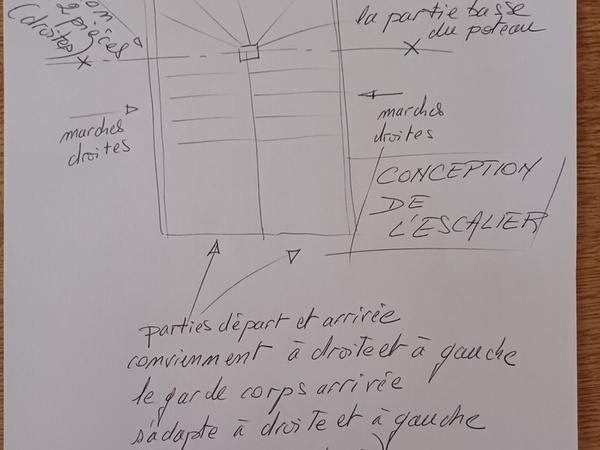 2 pièces
(droites)
la partie basse
du poteau
marches
droites
marches
droites
CONCEPTION
DE
L'ESCALIER
parties départ et arrivée
conviennment à droite et à gauche
le garde corps arrivée
s'adapte à droite et à gauche